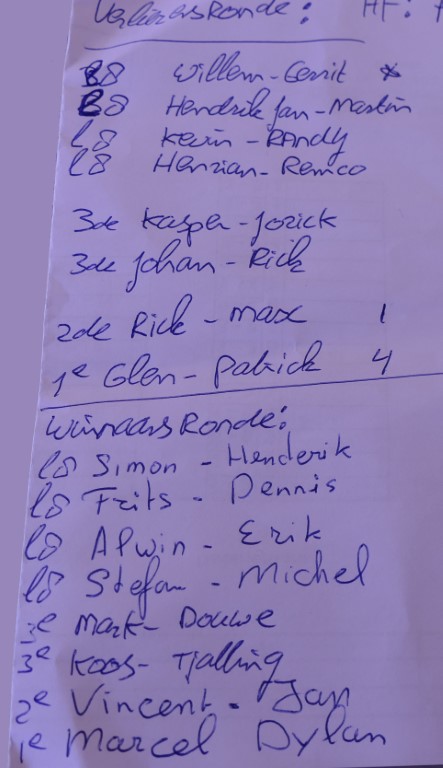 Verliezers Ronde: HF:
B8 Willem - Gerrit *
B8 Hendrik Jan - Martin
l8 Kevin - RANdy
l8 Henzian - Remco
3de Kasper - Jorick
3de Johan - Rick
2de Rick - max 1
1e Glen - Patrick 4
Winnaars Ronde:
l8 Simon - Henderik
l8 Frits - Dennis
l8 Alwin - Erik
l8 Stefan - Michel
3e Mark - Douwe
3e Koos - Tjalling
2e Vincent - Jan
1e Marcel Dylan